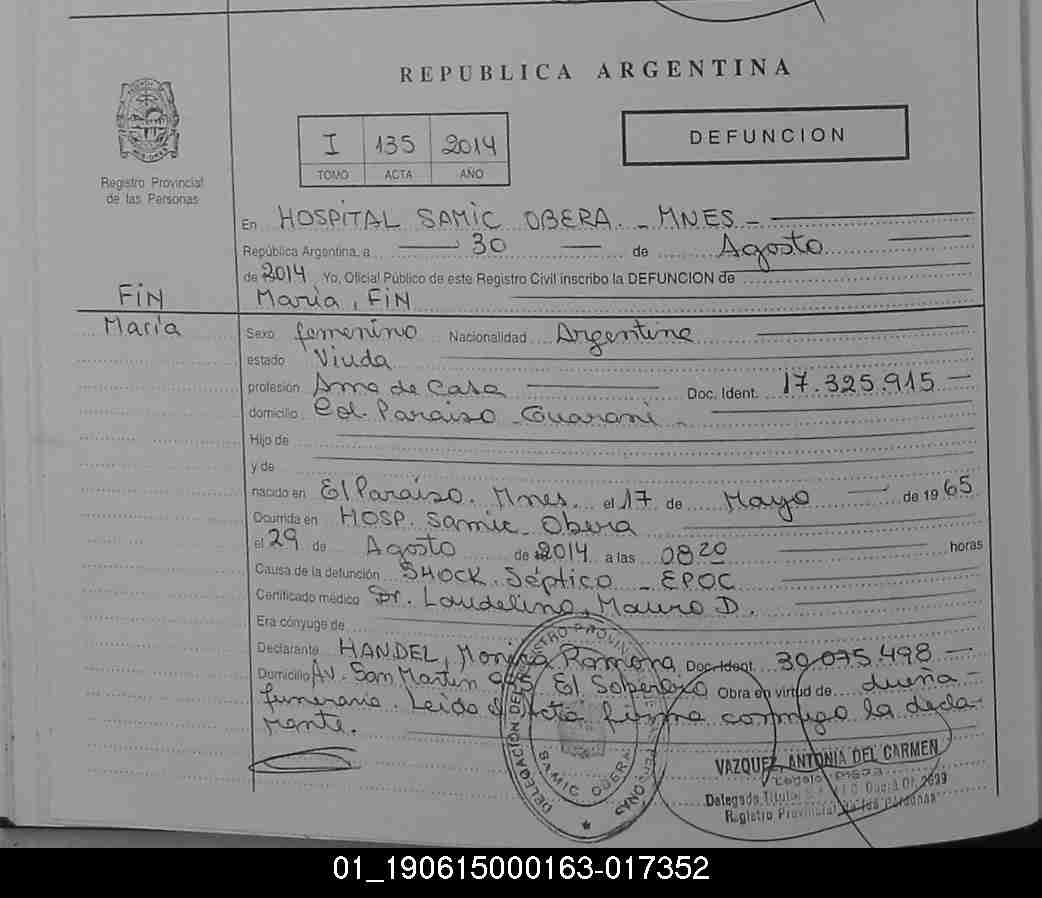 REPUBLICA ARGENTINA
I 135 2014
TOMO ACTA AÑO
DEFUNCION
Registro Provincial
de las Personas
En HOSPITAL SAMIC OBERA - MNES -
República Argentina, a 30 de Agosto
de 2014 Yo, Oficial Público de este Registro Civil inscribo la DEFUNCION de
FIN María, FIN
María Sexo femenino Nacionalidad Argentina
estado Viuda
profesión Ama de Casa Doc. Ident. 17.325.915
domicilio Col. Paraiso - Guarani -
Hijo de
y de
nacido en El Paraiso. Mnes. el 17 de Mayo de 1965
Ocurrida en HOSP. Samic Obera
el 29 de Agosto de 2014 a las 0820 horas
Causa de la defunción SHOCK Séptico - EPOC
Certificado médico Dr. Laudelino, Mauro D.
Era cónyuge de
Declarante HANDEL, Monica Ramona Doc. Ident. 30.075.498
Domicilio Av. San Martin 915 El Soberbio Obra en virtud de dueña
funeraria. Leida el Acta firma conmigo la decla-
rante.
DELEGACION DEL REGISTRO PROVINCIAL PERSONAS
SAMIC OBERA
VAZQUEZ, ANTONIA DEL CARMEN
Delegado Titular
Registro Provincial de las Personas
01_190615000163-017352